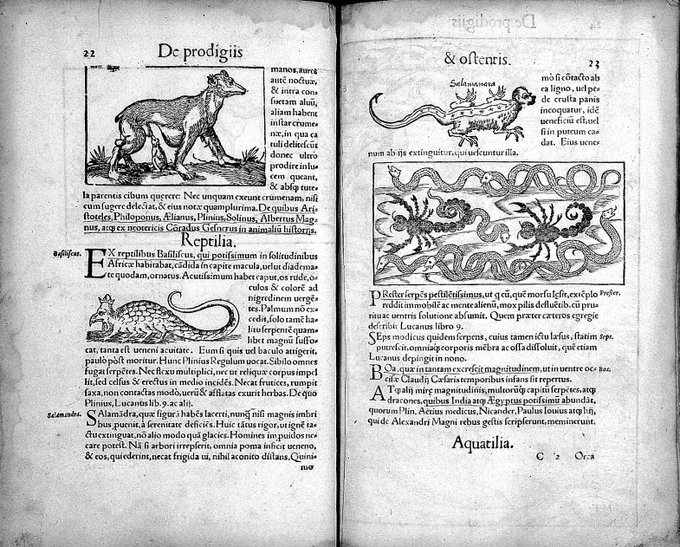 22
De prodigiis
manos, aures
autē noctuæ,
& intra con-
suetam aluū,
aliam habent
instar crume-
næ, in qua ca
tuli delitescūt
donec ultro
prodire in lu-
cem queant,
& absq; tute-
la parentis cibum quęrere: Nec unquam exeunt crumenam, nisi
cum sugere delectat, & eius notæ quamplurima. De quibus Ari-
stoteles, Philoponus, Ælianus, Plinius, Solinus, Albertus Mag-
nus, atq; ex neotericis Cōradus Gesnerus in animaliū historijs.
Reptilia.
Basiliscus.
EX reptilibus Basiliscus, qui potissimum in solitudinibus
Africæ habitabat, cādida in capite macula, uelut diadema-
te quodam, ornatus. Acutissimum habet caput, os rude, o-
culos & colorē ad
nigredinem uergē-
tes. Palmum nō ex-
cedit, solo tamē ha-
litu serpentē quam-
libet magnū suffo-
cat, tanta est ueneni acuitate. Eum si quis uel baculo attigerit,
paulò pòst moritur. Hunc Plinius Regulum uocat. Sibilo omnes
fugat serpētes. Nec flexu multiplici, nec ut reliquæ corpus impel
lit, sed celsus & erectus in medio incēdēs. Necat frutices, rumpit
saxa, non contactas modò, uerū & afflatas exurit herbas. De quo
Plinius, Lucanus lib. 9. ac alij.
Salamādra.
SAlamādra, quæ figurā habēs lacerti, nunq̄ nisi magnis imbri
bus puenit, à serenitate deficiēs. Huic tātus rigor, ut ignē ta-
ctu extinguat, nō alio modo quā glacies. Homines impuidos ne-
care potest. Nā si arbori irrepserit, omnia poma inficit ueneno,
& eos, qui ederint, necat frigida ui, nihil aconito distans. Quini-
mo
& ostentis.
23
Salamanara
mò si cōtacto ab
ea ligno, uel pe-
de crusta panis
incoquatur, idē
ueneficiū est, uel
si in puteum ca-
dat. Eius uene-
num ab ijs extinguitur, qui uescuntur illa.
PRester serpēs pestilētissimus, ut q̄ cū, quē morsu lęsit, exēplo
Prester.
reddit immobilē ac mente alienū, mox pilis defluētib. cū pru-
ritu ac uentris solutione absumit. Quem præter cæteros egregie
describit Lucanus libro 9.
SEps modicus quidem serpens, cuius tamen ictu læsus, statim
Seps.
putrescit, omniaq́; corporis mēbra ac ossa dissoluit, quē etiam
Lucanus depingit in nono.
BOa, quæ in tantam excrescit magnitudinem, ut in uentre oc-
Boa.
cisæ Claudij Cæsaris temporibus infans sit repertus.
ATq; alij miræ magnitudinis, multorūq; capitū serpētes, atq;
dracones, quibus India atq; Ægyptus potissimū abundāt,
quorum Plin. Aëtius medicus, Nicander, Paulus Iouius atq; hi,
qui de Alexandri Magni rebus gestis scripserunt, meminerunt.
Aquatilia.
C 2 Orca